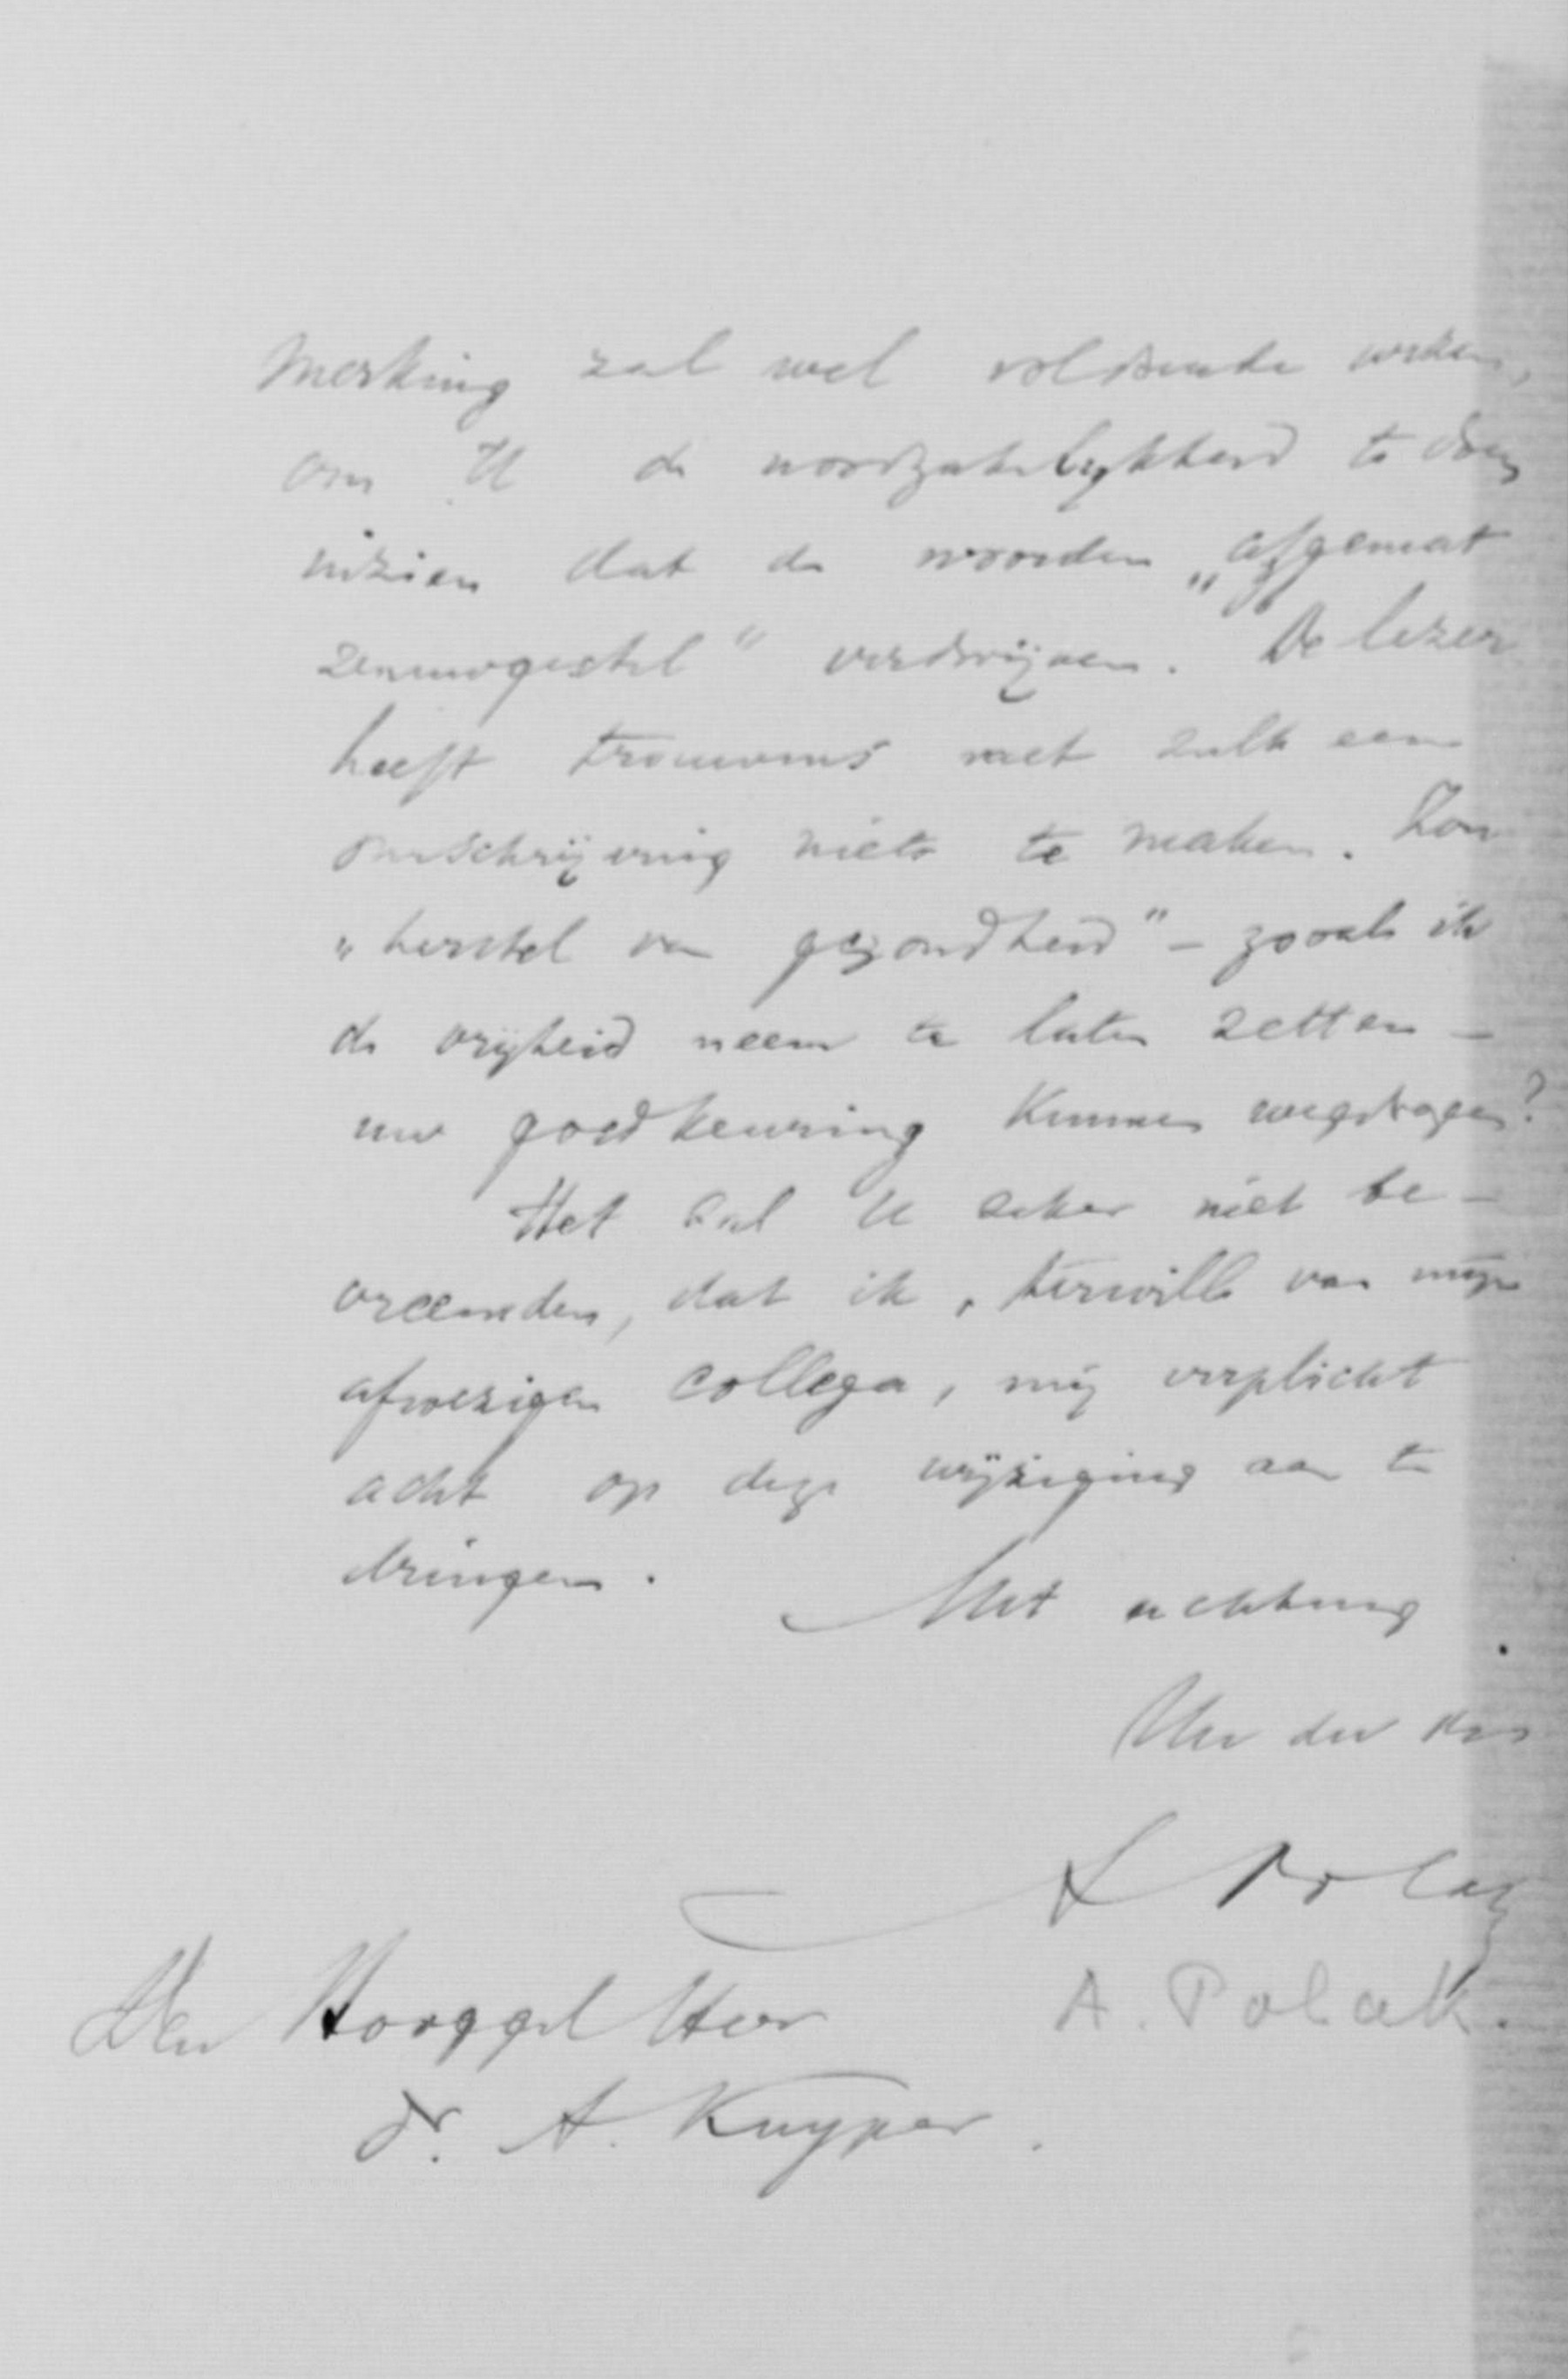 merking zal wel voldoende wezen,
om U de noodzakelijkheid te doen
inzien dat de woorden „afgemat
zenuwgestel" verdwijnen. De lezer
heeft trouwens met zulk een
omschrijving niets te maken. Zou
„herstel van gezondheid" – zooals ik
de vrijheid neem te laten zetten –
uw goedkeuring kunnen wegdragen?
Het zal U zeker niet be-
vreemden, dat ik, terwille van mijn
afwezigen collega, mij verplicht
acht op deze wijziging aan te
dringen.
Met achting
Uw dw
A Polak
A. Polak.
Den Hooggel Heer
Dr. A. Kuyper.